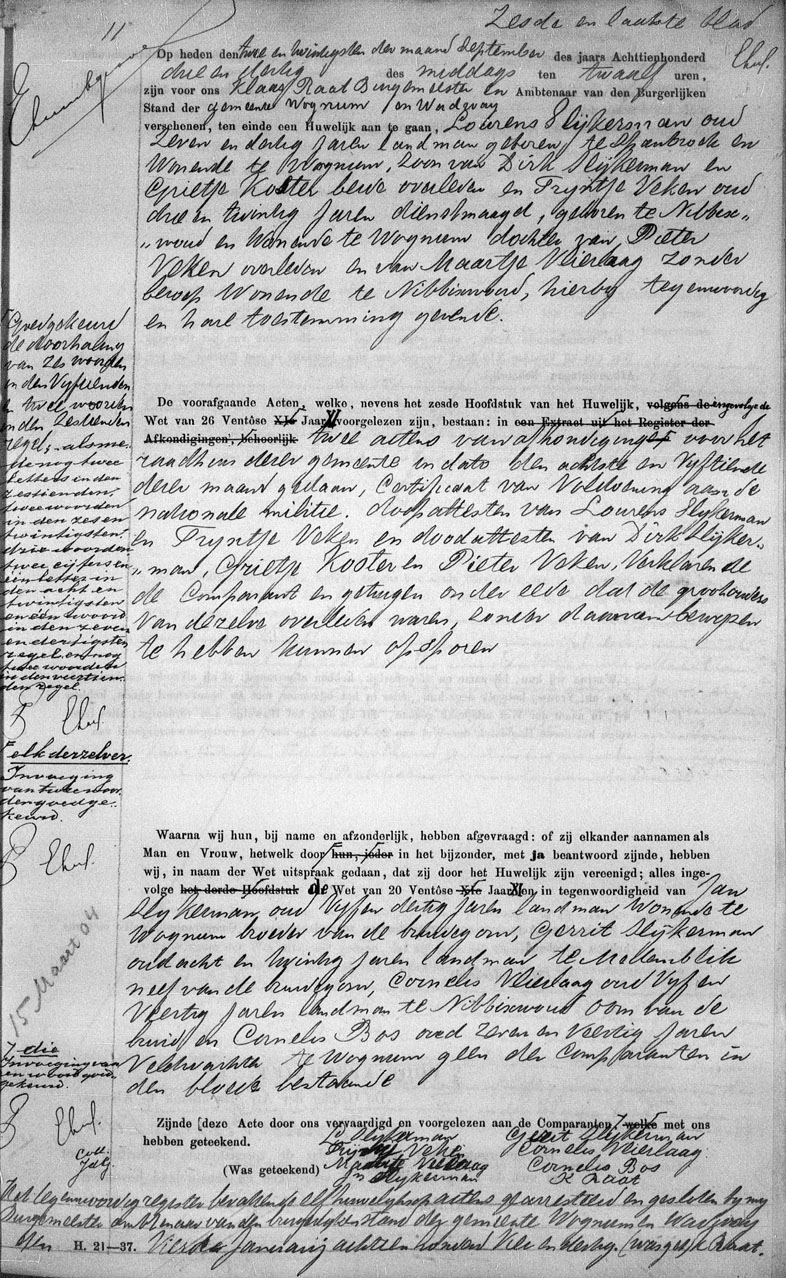 Zesde en laatste blad
11
Op heden den twee en twintigsten der maand September des jaars Achttienhonderd
drie en dertig des middags ten twaalf uren,
zijn voor ons Klaas Raat Burgemeester en Ambtenaar van den Burgerlijken
Stand der gemeente Wognum en Wadway
verschenen, ten einde een Huwelijk aan te gaan, Lourens Slijkerman oud
Zeven en dertig Jaren landman geboren te Spanbroek en
Wonende te Wognum, Zoon van Dirk Slijkerman en
Grietje Koster beide overleden en Trijntje Veken oud
drie en twintig Jaren dienstmaagd, geboren te Nibbix„
„woud en Wonende te Wognum dochter van, Pieter
Veken overleden en van Maartje Vlierlaag Zonder
beroep Wonende te Nibbixwoud, hierby tegenwoordig
en hare toestemming gevende.
Goedgekeurd
de doorhaling
van Zes woorden
in den Vyftienden
en twee woorden
in den Zestienden
regel; alsme„
de nog twee
letters in den
zestienden,
twee woorden
in den zes en
twintigsten,
drie woorden
twee cijfers en
een letter in
den acht en
twintigsten
en een woord
in den zeven
en dertigsten
regel en nog
twee woorden
in den veertien„
den regel.
De voorafgaande Acten, welke, nevens het zesde Hoofdstuk van het Huwelijk, volgens de ingevolge de
Wet van 26 Ventôse XIe Jaar XI voorgelezen zijn, bestaan: in een Extract uit het Register der
Afkondigingen, behoorlijk twee actens van afkondigingen voor het
raadhuis dezer gemeente in dato den achtste en Vyftiende
dezer maand gedaan, Certificaat van Voldoening aan de
nationale militie. doopattesten van Lourens Slijkerman
en Trijntje Veken en doodattesten van Dirk Slijker„
„man, Grietje Koster en Pieter Veken, Verklarende
de Comparant en getuigen onder eede dat de grootouders
van dezelve overleden waren, zonder daarvan bewyzen
te hebben kunnen opsporen
elk derzelver.
Invoeging
van twee woor„
den goedge„
keurd.
Waarna wij hun, bij name en afzonderlijk, hebben afgevraagd: of zij elkander aannamen als
Man en Vrouw, hetwelk door hun, ieder in het bijzonder, met ja beantwoord zijnde, hebben
wij, in naam der Wet uitspraak gedaan, dat zij door het Huwelijk zijn vereenigd; alles inge-
volge het derde Hoofdstuk de Wet van 20 Ventôse XIe Jaar XI en, in tegenwoordigheid van Jan
Slijkerman, oud Vyf en dertig Jaren landman Wonende te
Wognum broeder van de bruidegom, Gerrit Slijkerman
oud acht en twintig Jaren landman te Medemblik
neef van de bruidegom, Cornelis Vlierlaag oud Vyf en
Veertig Jaren landman te Nibbixwoud Oom van de
bruid en Cornelis Bos oud Zeven en Veertig Jaren
Veldwachter te Wognum geen der Comparanten in
den bloede bestaande
15 Maart 04
die
Invoeging van
een woord goed„
gekeurd.
Coll.
Zijnde [deze Acte door ons vervaardigd en voorgelezen aan de Comparanten, welke met ons
hebben geteekend.
(Was geteekend)
L. Slijkerman
Trijntje Veken
Maartje Vlierlaag
Jn Slijkerman
Gerrit Slijkerman
Cornelis Vlierlaag
Cornelis Bos
K Raat
Het tegenwoordig register bevattende elf huwelijksactens gearresteerd en gesloten by my
Burgemeester Ambtenaar van den burgerlijke stand der gemeente Wognum en Wadway
den Vierde January achttien honderd Vier en dertig. (was get) K Raat.
H. 21—37.